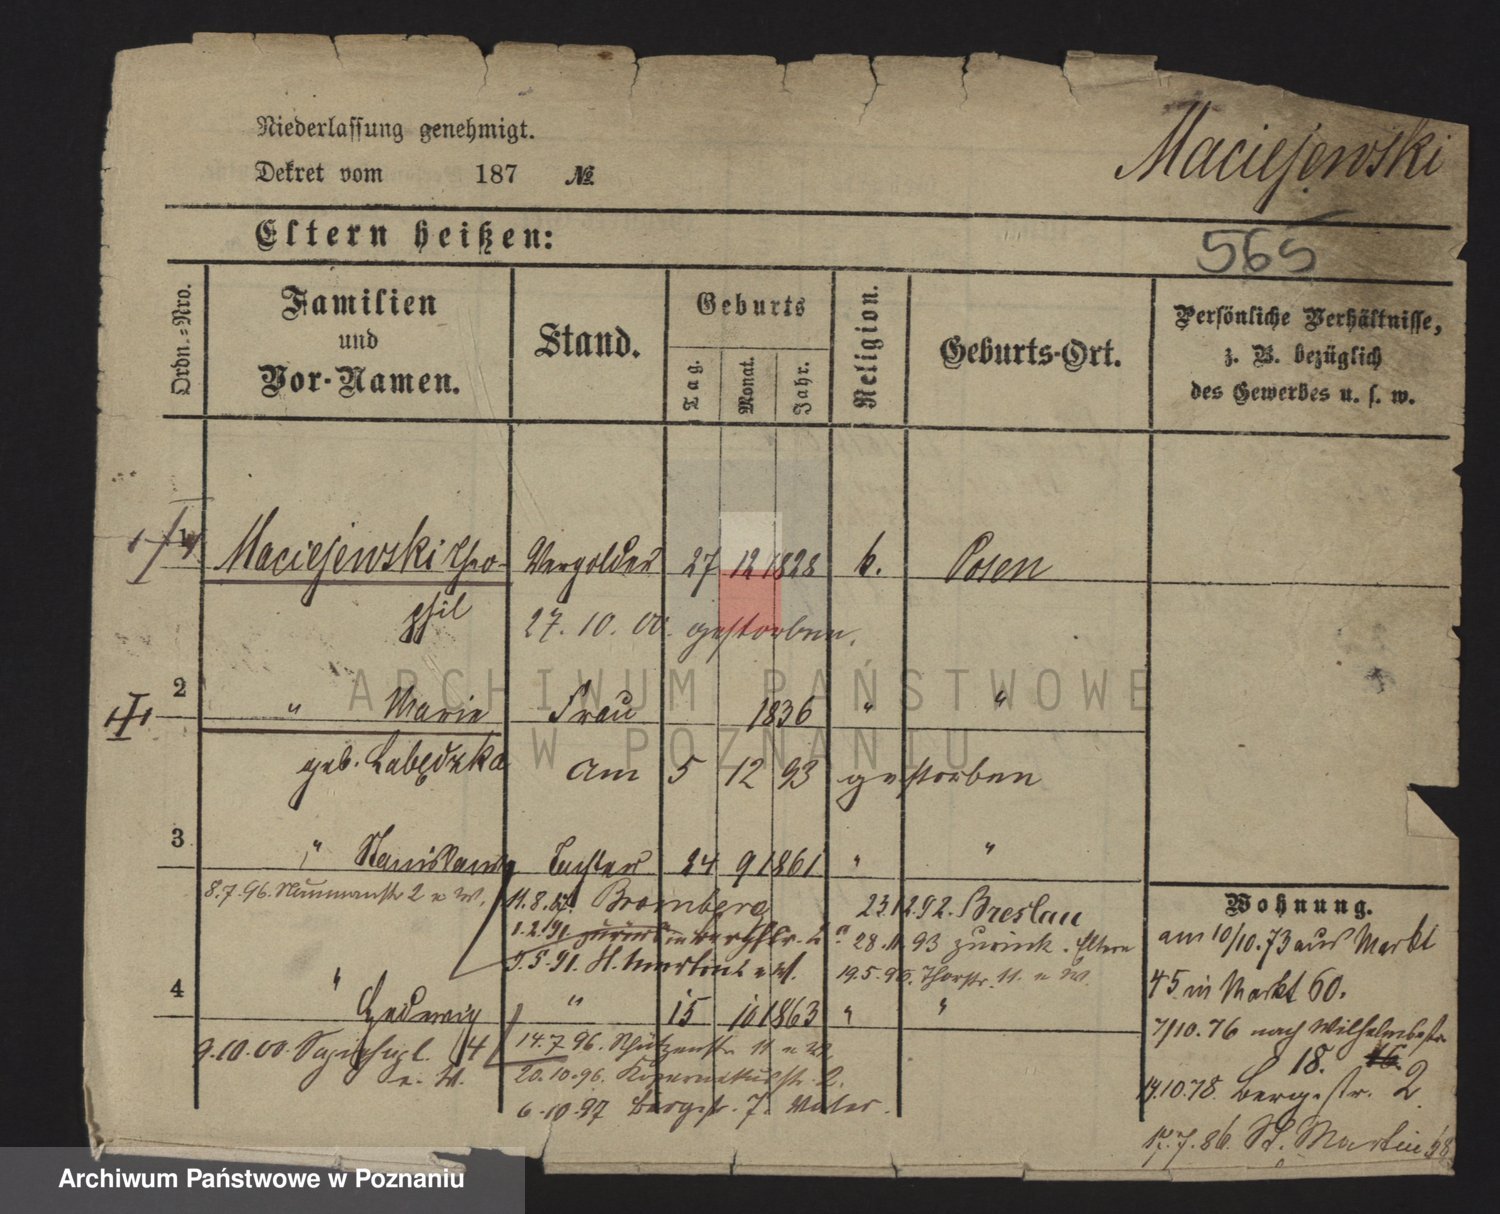 Niederlassung genehmigt.
Dekret vom 187 №
Maciejewski
565
Eltern heißen:
Ordn.=Nro.
Familien
und
Vor-Namen.
Stand.
Geburts
Tag.
Monat.
Jahr.
Religion.
Geburts-Ort.
Persönliche Verhältnisse,
z. B. bezüglich
des Gewerbes u. s. w.
1 Maciejewski Theo- Vergolder 27 12 1828 k. Posen
phil 27. 10. 00. gestorben.
2 " Marie Frau 1836 " "
geb. Łabędzka am 5 12 93 gestorben
3 " Stanislawa Tochter 24 9 1861 " "
8.7.96. Naumannstr 2 e W. 11.8. Bromberg 23 12 92. Breslau
1.2.91 28.11.93 zurück. Eltern
5.5.91. St. Martin e W. 19.5.95. Thorstr. 11. e W.
4 " Hedwig " 15 10 1863 " "
9.10.00. Sapiehapl. 14 14.7 96. Schützenstr 11 e W
e. W. 20.10.96. Kopernikusstr. 2.
6.10.97 Bergstr. 7. Vater.
Wohnung.
am 10/10.73 aus Markt
45 in Markt 60.
7/10.76 nach Wilhelmstr.
18. 16.
14.10.78. Bergstr. 2
17.7.86. St. Martin 58
ARCHIWUM PAŃSTWOWE
W POZNANIU
Archiwum Państwowe w Poznaniu